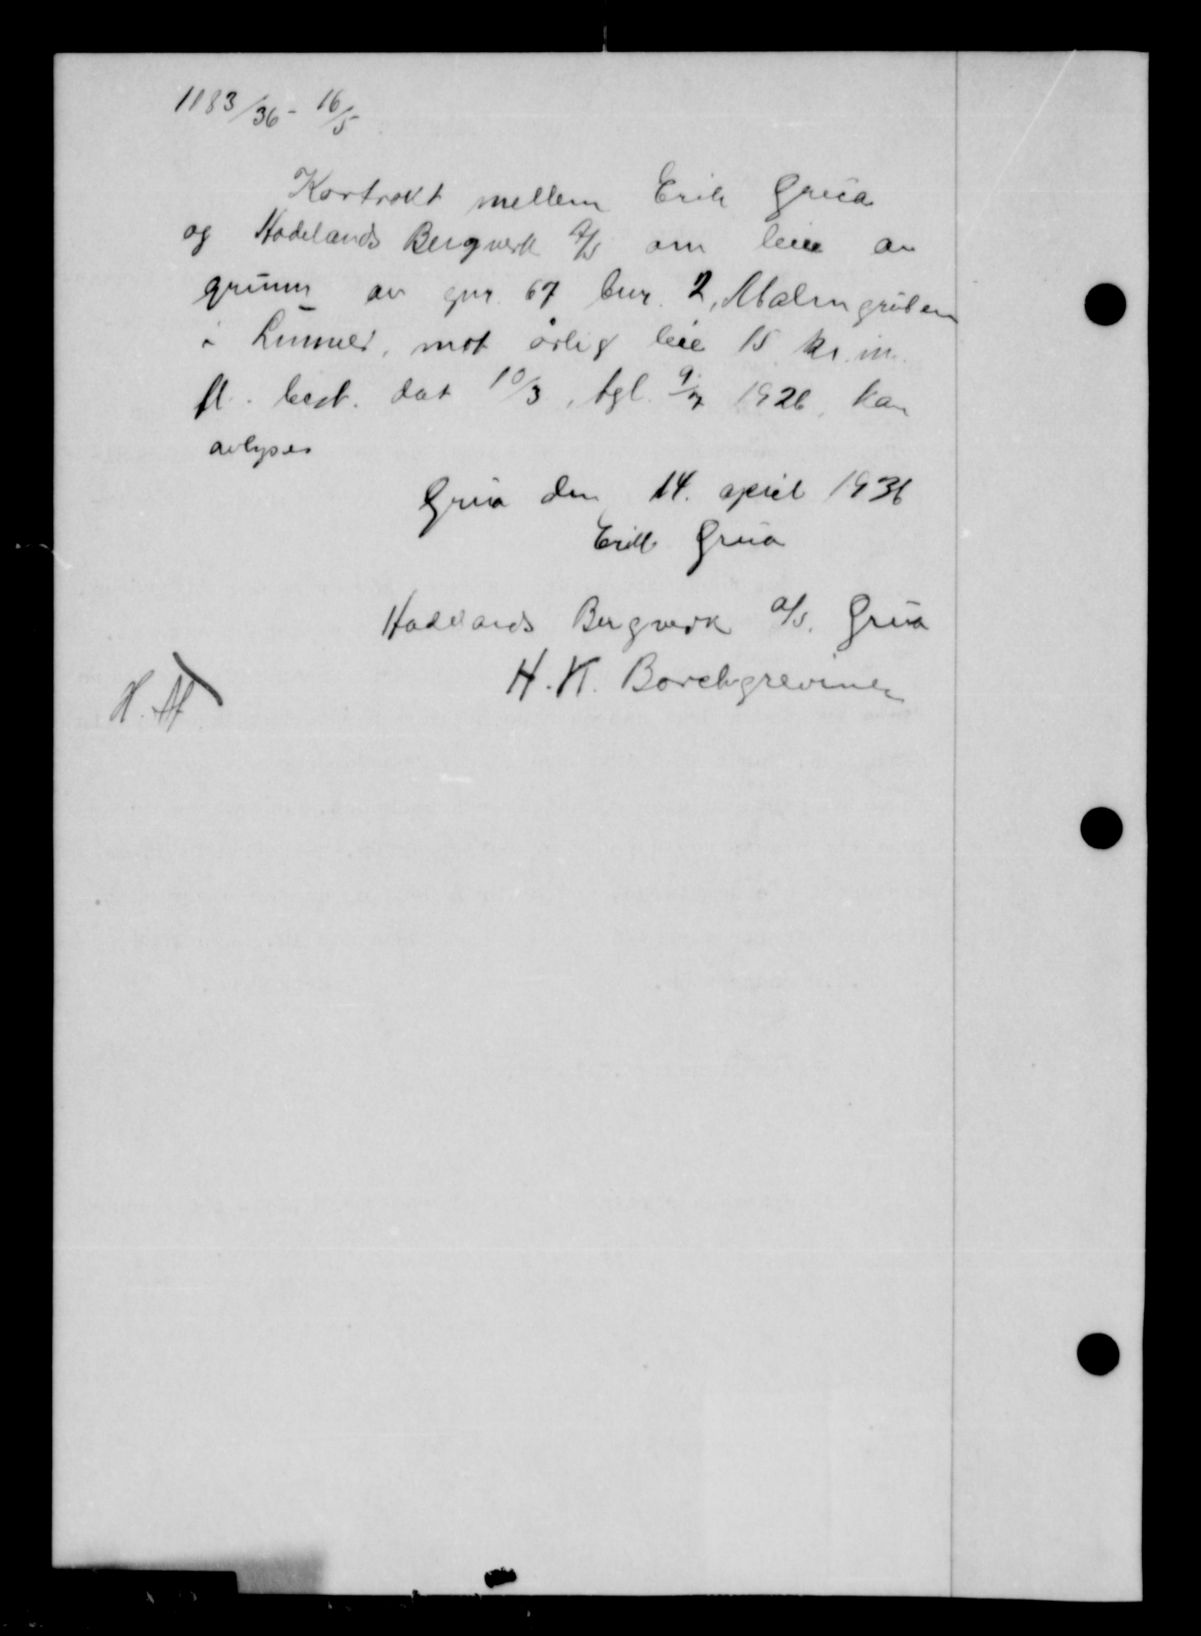 1183/36 - 16/5
Kontrakt mellem Erik Grua
og Hadelands Bergverk A/S om leie av
grunn av gnr. 67 bnr. 2, Malmgruben
i Lunner, mot årlig leie 15 kr. m.
fl. best. dat 10/3, tgl. 9/7 1926, kan
avlyses
Grua den 14. april 1936
Erik Grua
Hadelands Bergverk a/s. Grua
H. K. Borchgrevinck